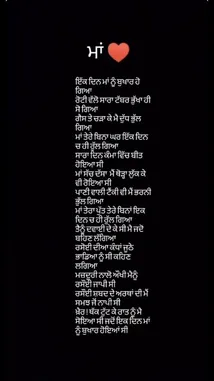 ਮਾਂ ❤️
ਇੱਕ ਦਿਨ ਮਾਂ ਨੂੰ ਬੁਖਾਰ ਹੋ
ਗਿਆ
ਰੋਟੀ ਵੱਲੋ ਸਾਰਾ ਟੱਬਰ ਭੁੱਖਾ ਹੀ
ਸੋ ਗਿਆ
ਗੈਸ ਤੇ ਚੜਾ ਕੇ ਮੈ ਦੁੱਧ ਭੁੱਲ
ਗਿਆ
ਮਾਂ ਤੇਰੇ ਬਿਨਾ ਘਰ ਇੱਕ ਦਿਨ
ਚ ਹੀ ਰੁੱਲ ਗਿਆ
ਸਾਰਾ ਦਿਨ ਕੰਮਾ ਵਿੱਚ ਬੀਤ
ਹੋਇਆ ਸੀ
ਮਾਂ ਸੱਚ ਦੱਸਾ ਮੈਂ ਥੋੜ੍ਹਾ ਲੁੱਕ ਕੇ
ਵੀ ਰੋਇਆ ਸੀ
ਪਾਣੀ ਵਾਲੀ ਟੈਂਕੀ ਵੀ ਮੈਂ ਭਰਨੀ
ਭੁੱਲ ਗਿਆ
ਮਾਂ ਤੇਰਾ ਪੁੱਤ ਤੇਰੇ ਬਿਨਾਂ ਇਕ
ਦਿਨ ਚ ਹੀ ਰੁੱਲ ਗਿਆ
ਤੈਨੂੰ ਦਵਾਈ ਦੇ ਕੇ ਸੀ ਮੈ ਜਦੋ
ਬਹਿਣ ਲੱਗਿਆ
ਰਸੋਈ ਦੀਆ ਕੰਧਾਂ ਜੂਠੇ
ਭਾਂਡਿਆ ਨੂੰ ਸੀ ਕਹਿਣ
ਲਗਿਆ
ਮਜ਼ਦੂਰੀ ਨਾਲੋ ਔਖੀ ਮੈਨੂੰ
ਰਸੋਈ ਜਾਪੀ ਸੀ
ਰਸੋਈ ਸ਼ਬਦ ਦੇ ਅਰਥਾਂ ਦੀ ਮੈਂ
ਸਮਝ ਜੋਂ ਨਾਪੀ ਸੀ
ਖ਼ੈਰ! ਥੱਕ ਟੁੱਟ ਕੇ ਰਾਤ ਨੂੰ ਮੈ
ਸੋਇਆ ਸੀ ਜਦੋਂ ਇਕ ਦਿਨ ਮਾਂ
ਨੂੰ ਬੁਖਾਰ ਹੋਇਆਂ ਸੀ